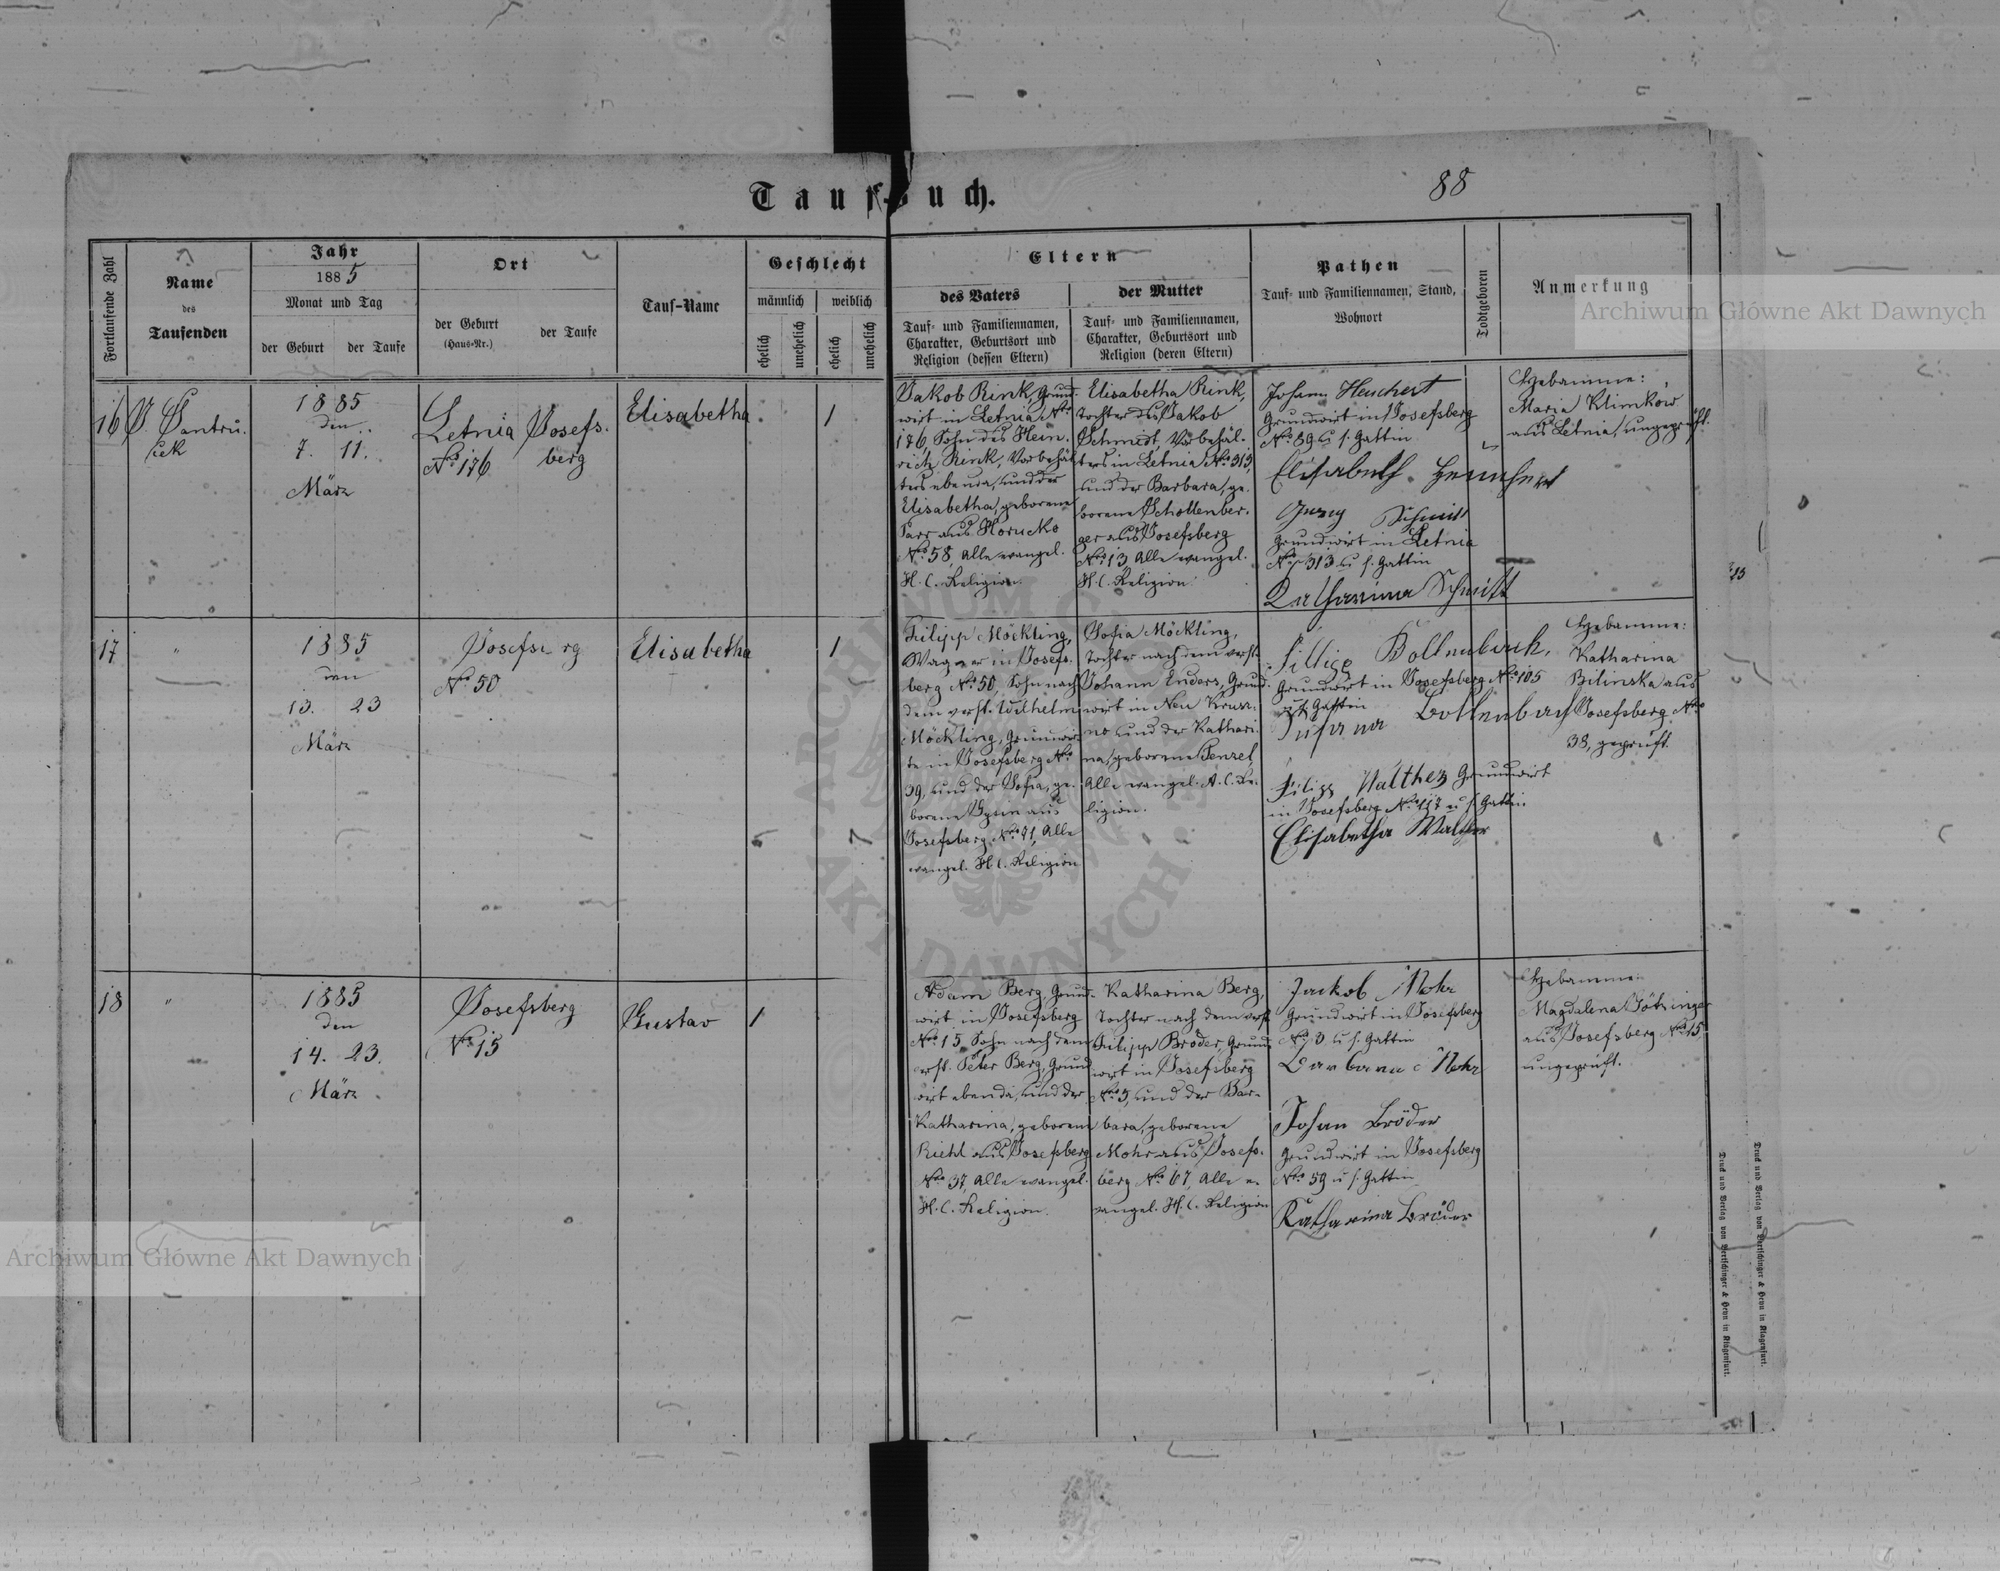 Tauf-Buch.
88
Fortlaufende Zahl
Name
des
Taufenden
Jahr
1885
Monat und Tag
der Geburt
der Taufe
Ort
der Geburt
(Haus-Nr.)
der Taufe
Tauf-Name
Geschlecht
männlich
weiblich
ehelich
unehelich
ehelich
unehelich
Eltern
des Vaters
Tauf- und Familiennamen,
Charakter, Geburtsort und
Religion (dessen Eltern)
der Mutter
Tauf- und Familiennamen,
Charakter, Geburtsort und
Religion (deren Eltern)
Pathen
Tauf- und Familiennamen, Stand,
Wohnort
Todtgeboren
Anmerkung
Archiwum Główne Akt Dawnych
16
1885
den
7. 11.
März
Letnia
No 176
Josefs-
berg
Elisabetha
1
Jakob Rink, Grund-
wirt in Letnia No
176 Sohn des Hein-
rich Rink, Vorbehäl-
ters ebenda, und der
Elisabetha, geborene
aus Horucko
No 58, Alle evangel.
H. C. Religion.
Elisabetha Rink,
Tochter des Jakob
Schmidt, Vorbehäl-
ters in Letnia No 313,
und der Barbara, ge-
borene Schollenber-
ger aus Josefsberg
No 13, Alle evangel.
H. C. Religion.
Johann Heuchert
Grundwirt in Josefsberg
No 89 u s. Gattin
Elisabeth Heuchert
Schmitt
Grundwirt in Letnia
No 313 u s. Gattin
Katharina Schmitt
Hebamme:
Maria Klimkow
aus Letnia, ungeprüft.
17
"
1885
den
13. 23
März
No 50
Elisabetha
1
Filipp Möckling,
Wagner in Josefs-
berg No 50, Sohn nach
dem verst. Wilhelm
Möckling, Grundwir-
te in Josefsberg No
39, und der Sofia, ge-
borene aus
Josefsberg No 71, Alle
evangel. H. C. Religion
Sofia Möckling,
Tochter nach dem verst.
Johann Enders, Grund-
wirt in Neu
und der Kathari-
na, geborene Penzel,
Alle evangel. A. C. Re-
ligion.
Bollenbach,
Grundwirt in Josefsberg No 105
u s. Gattin
Susana Bollenbach
Filipp Walther Grundwirt
in Josefsberg No 117 u s. Gattin
Elisabetha Walther
Hebamme:
Katharina
Bilinska aus
Josefsberg No
38, geprüft.
18
"
1885
den
14. 23.
März
Josefsberg
No 15
Gustav
1
Adam Berg, Grund-
wirt in Josefsberg
No 15, Sohn nach dem
verst. Peter Berg, Grund-
wirt ebenda, und der
Katharina, geborene
Riehl aus Josefsberg
No 37, Alle evangel.
H. C. Religion.
Katharina Berg,
Tochter nach dem verst.
Filipp Bröder, Grund-
wirt in Josefsberg
No 5, und der Bar-
bara, geborene
Mohr aus Josefs-
berg No 67, Alle e-
vangel. H. C. Religion
Jackob Mohr
Grundwirt in Josefsberg
No 3 u s. Gattin
Barbara Mohr
Johan Bröder
Grundwirt in Josefsberg
No 59 u s. Gattin
Katharina Bröder
Hebamme:
Magdalena Götzinger
aus Josefsberg No 15,
ungeprüft.
Archiwum Główne Akt Dawnych
ARCHIWUM GŁÓWNE AKT DAWNYCH